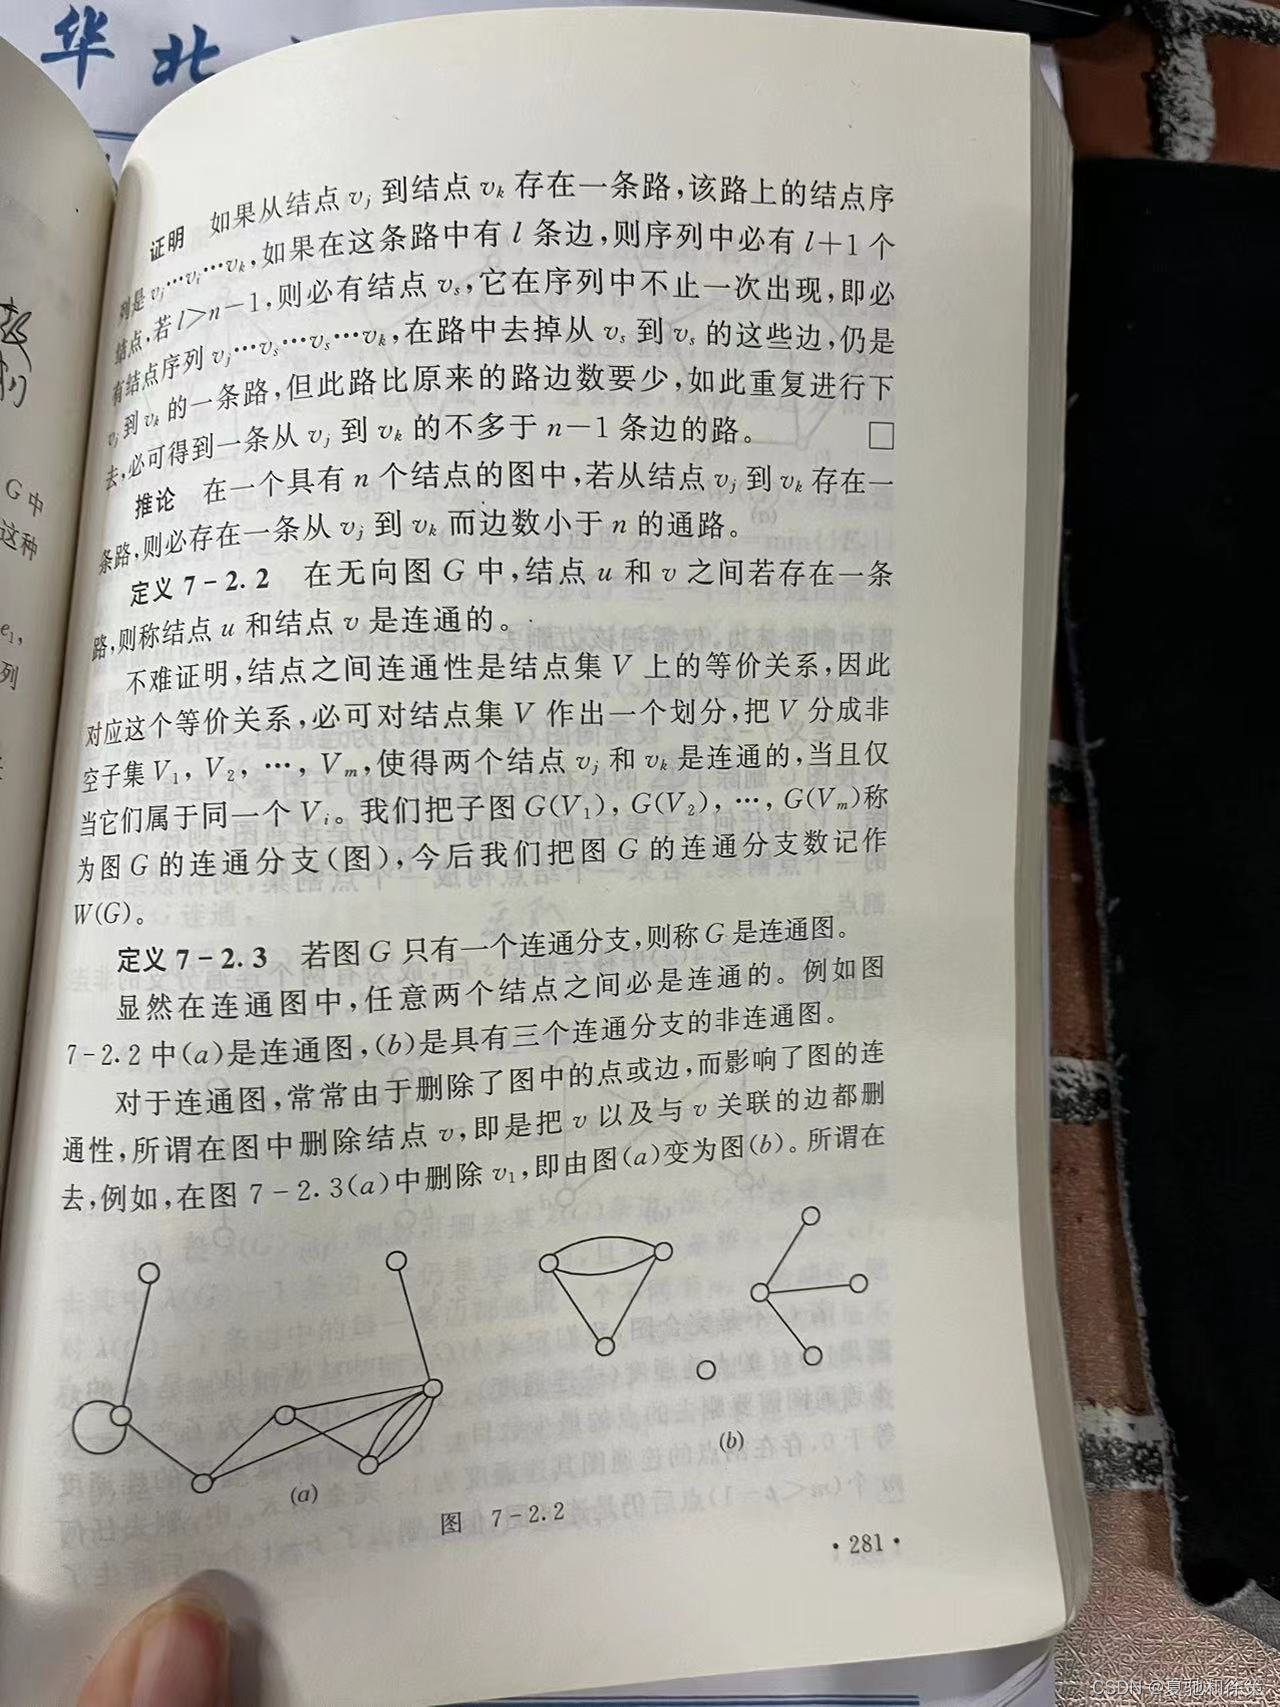 华北
G中
这种
e₁,
列
证明 如果从结点 vⱼ 到结点 vₖ 存在一条路,该路上的结点序
列是 vⱼ…vᵢ…vₖ,如果在这条路中有 l 条边,则序列中必有 l+1 个
结点,若 l>n-1,则必有结点 vₛ,它在序列中不止一次出现,即必
有结点序列 vⱼ…vₛ…vₛ…vₖ,在路中去掉从 vₛ 到 vₛ 的这些边,仍是
vⱼ 到 vₖ 的一条路,但此路比原来的路边数要少,如此重复进行下
去,必可得到一条从 vⱼ 到 vₖ 的不多于 n-1 条边的路。 □
推论 在一个具有 n 个结点的图中,若从结点 vⱼ 到 vₖ 存在一
条路,则必存在一条从 vⱼ 到 vₖ 而边数小于 n 的通路。
定义 7-2.2 在无向图 G 中,结点 u 和 v 之间若存在一条
路,则称结点 u 和结点 v 是连通的。
不难证明,结点之间连通性是结点集 V 上的等价关系,因此
对应这个等价关系,必可对结点集 V 作出一个划分,把 V 分成非
空子集 V₁, V₂, …, Vₘ,使得两个结点 vⱼ 和 vₖ 是连通的,当且仅
当它们属于同一个 Vᵢ。我们把子图 G(V₁), G(V₂), …, G(Vₘ)称
为图 G 的连通分支(图),今后我们把图 G 的连通分支数记作
W(G)。
定义 7-2.3 若图 G 只有一个连通分支,则称 G 是连通图。
显然在连通图中,任意两个结点之间必是连通的。例如图
7-2.2 中(a)是连通图,(b)是具有三个连通分支的非连通图。
对于连通图,常常由于删除了图中的点或边,而影响了图的连
通性,所谓在图中删除结点 v,即是把 v 以及与 v 关联的边都删
去,例如,在图 7-2.3(a)中删除 v₁,即由图(a)变为图(b)。所谓在
(a)
(b)
图 7-2.2
·281·